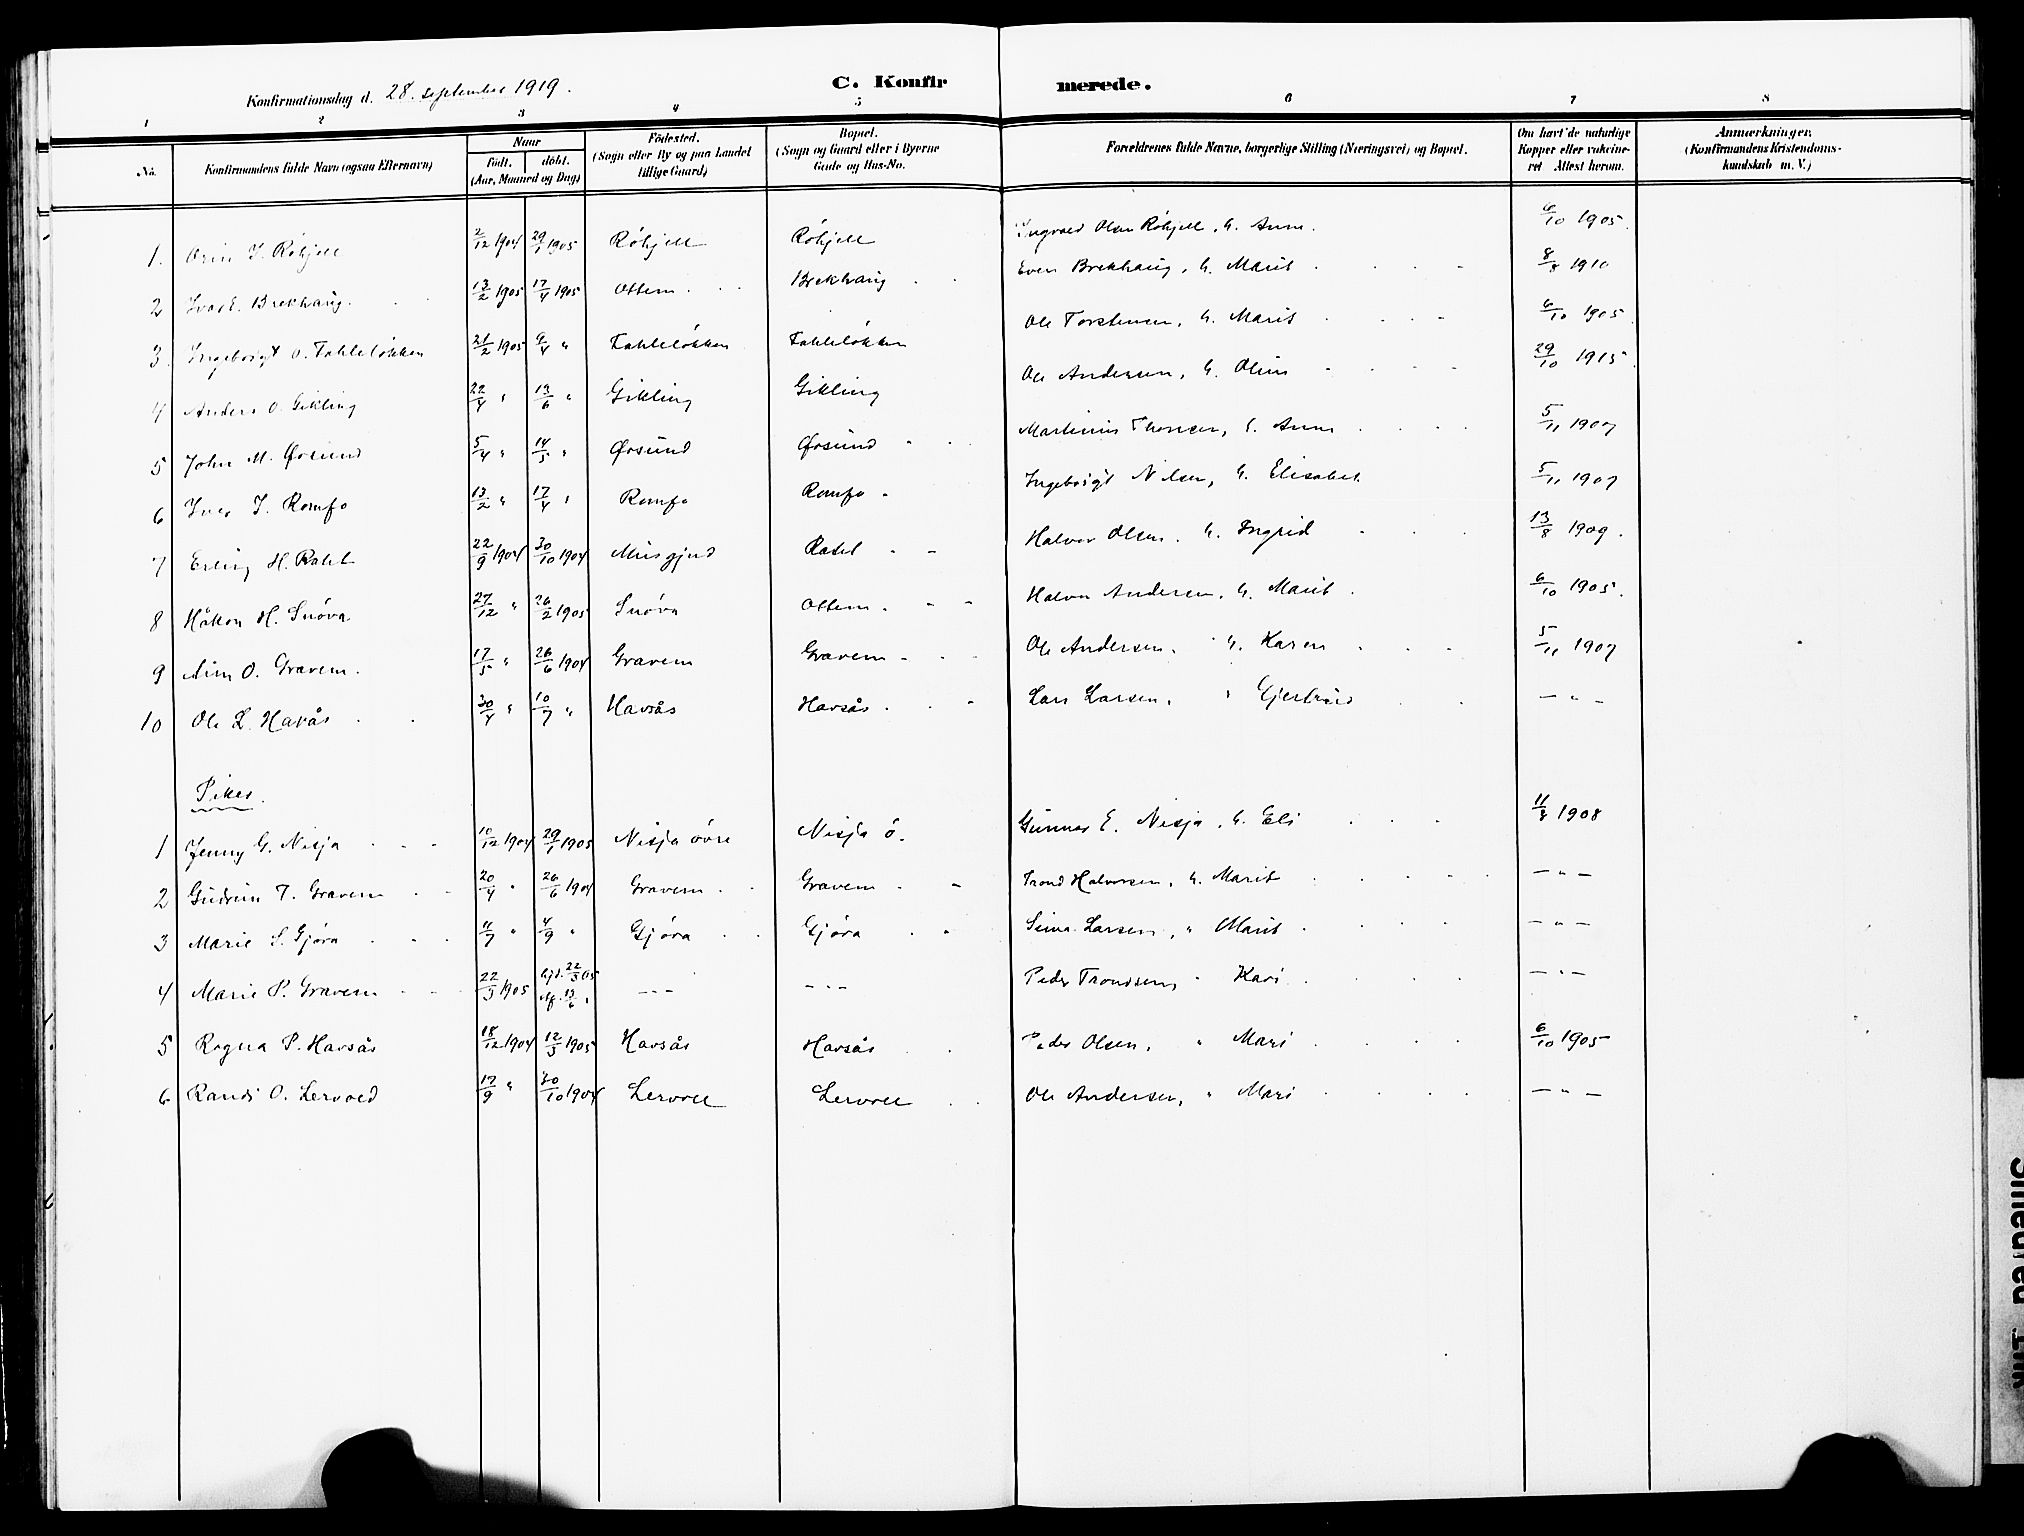 Konfirmationsdag d. 28. september 1919. C. Konfir merede.
1 2 3 4 5 6 7 8
No. Konfirmandens fulde Navn (ogsaa Efternavn) Naar født, døbt. (Aar, Maaned og Dag) Fødested. (Sogn eller By og paa Landet tillige Gaard) Bopæl. (Sogn og Gaard eller i Byerne Gade og Hus-No. Forældrenes fulde Navne, borgerlige Stilling (Næringsvei) og Bopæl. Om havt de naturlige Kopper eller vakcineret Attest herom. Anmærkninger. (Konfirmandens Kristendomskundskab m. V.)
1. I. Røhjell 2/12 1904 29/1 1905 Røhjell Røhjell Ingvald Olsen Røhjell, h. Anne. 6/10 1905.
2 Ivar E. Brekhaug. 13/2 1905 17/4 1905 Ottem Brekhaug Even Brekhaug, h. Marit 8/8 1910
3. Ingebrigt O. Fahleløkken 21/2 1905 9/4 " Fahleløkken Fahleløkken Ole Torstensen, h. Marit 6/10 1905
4 Anders O. Gikling 22/4 " 13/6 " Gikling Gikling Ole Andersen, h. Oline 29/10 1915
5 John M. Øvsund 5/4 " 14/5 " Øvsund Øvsund Martinus Thoresen, h. Anne 5/11 1907
6 Iver I. Romfo 13/2 " 17/4 " Romfo Romfo Ingebrigt Nilsen, h. Elisabet 5/11 1907
7 Erling H. 22/9 1904 30/10 1904 Musgjerd Halvor Olsen. h. Ingrid 13/8 1909.
8 Håkon H. Snøva 27/12 " 26/2 1905 Snøva Ottem Halvor Andersen, h. Marit. 6/10 1905.
9 O. Gravem. 17/5 " 26/6 1904 Gravem Gravem Ole Andersen. h. Karen 5/11 1907
10 Ole L. Havås 30/4 " 10/7 " Havsås Havsås Lars Larsen. " Gjertrud — " —
Piker.
1 Jenny G. Nisja 10/12 1904 29/1 1905 Nisja øvre Nisja ø. Gunnar E. Nisja, h. Eli 11/8 1908
2 Gudrun T. Gravem 20/4 " 26/6 1904 Gravem Gravem Trond Halvorsen, h. Marit — " —
3 Marie S. Gjøra 11/7 " 4/9 " Gjøra Gjøra Larsen, " Marit — " —
4 Marie P. Gravem 22/3 1905 hjd. 22/3 05 13/6 " — " — — " — Peder Trondsen, " Kari — " —
5 Ragna P. Havsås 18/12 1904 12/3 1905 Havsås Havsås Peder Olsen, " Mari 6/10 1905
6 Randi O. Lervold 17/9 " 30/10 1904 Lervoll Lervoll Ole Andersen, " Mari — " —